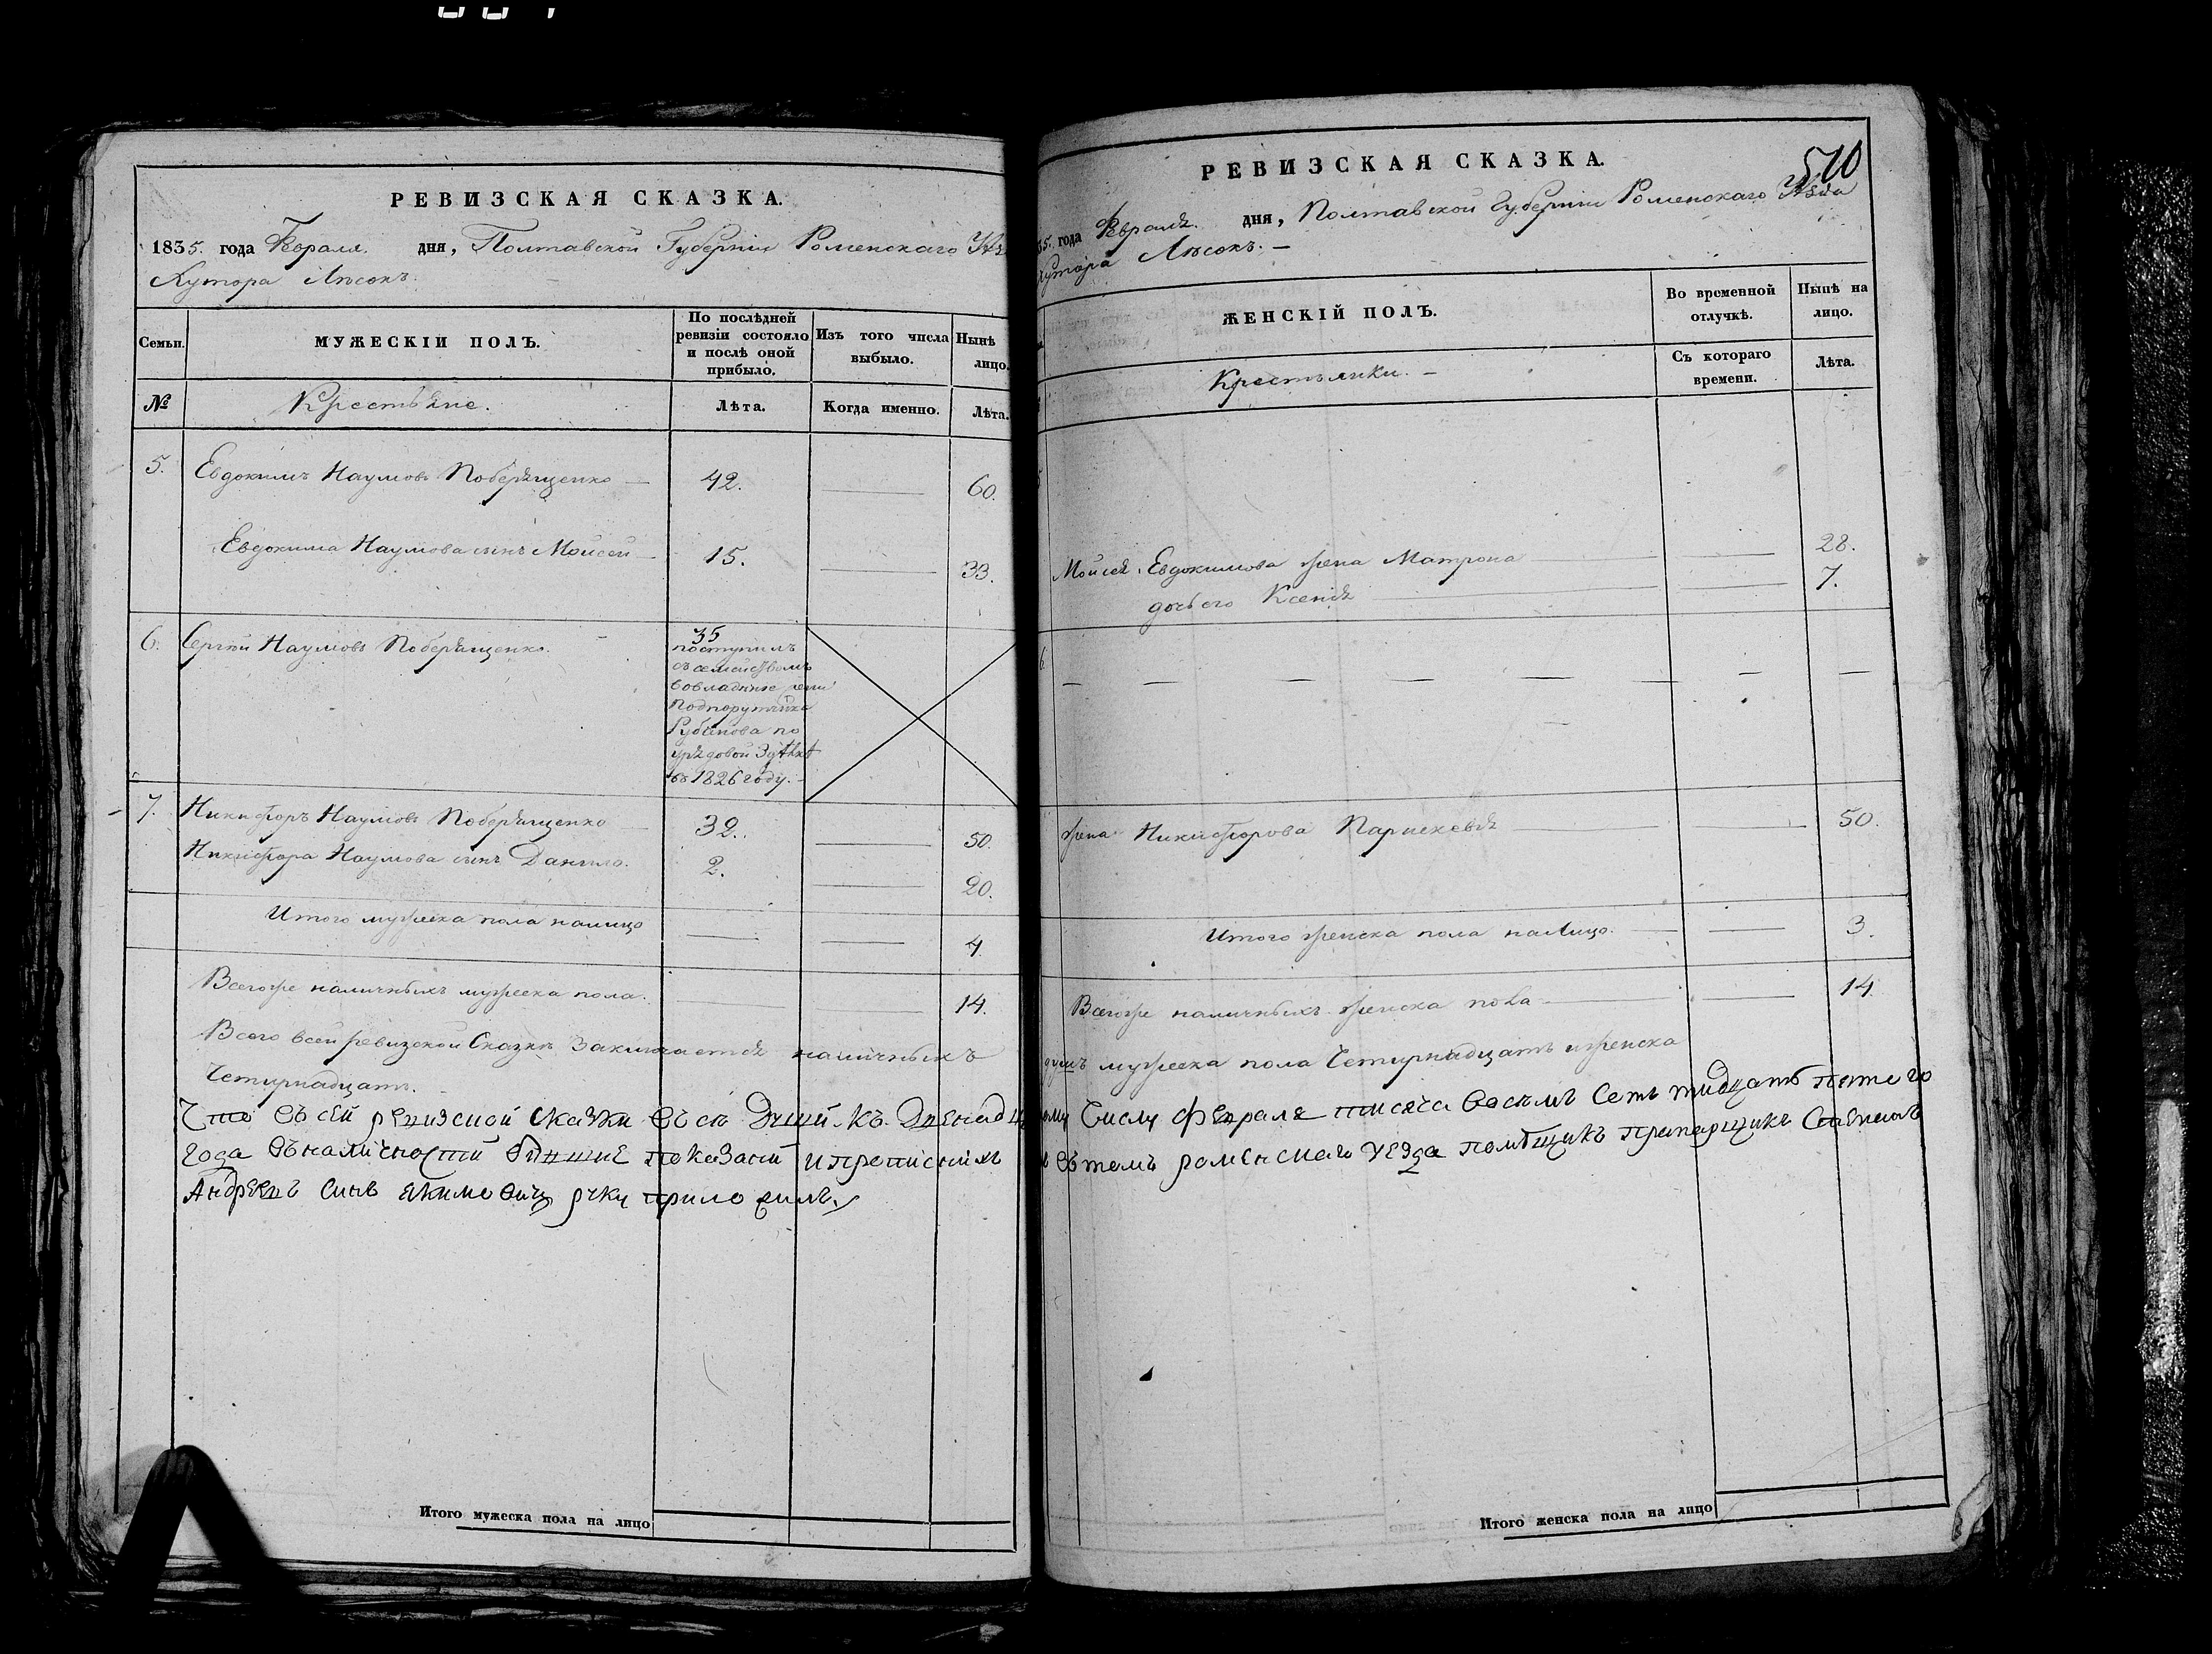 РЕВИЗСКАЯ СКАЗКА.
1835. года Февраля дня, Полтавской Губерніи Роменскаго
Хутора Лѣсокъ.
Семьи.
МУЖЕСКІЙ ПОЛЪ.
По послѣдней
ревизіи состояло
и послѣ оной
прибыло.
Изъ того числа
выбыло.
Нынѣ
лицо.
№
Крестьяне.
Лѣта.
Когда именно.
Лѣта.
5. Евдокимъ Наумовъ Поберященко — 42. — 60.
Евдокима Наумова сынъ Мойсей — 15. — 33.
6. Сергій Наумовъ Поберященко.
35
поступилъ
съ семействомъ
во владѣніе
Подпорутчика
Рубанова по
урядовой
въ 1826 году. -
7. Никифоръ Наумовъ Поберященко 32. — 50.
Никифора Наумова сынъ Данило. 2. — 20.
Итого мужеска пола налицо — — 4
Всегоже наличныхъ мужеска пола. — — 14.
Всего всей ревизской Сказкѣ Заключается наличныхъ
Четырнадцать.
Что въ сей ревизской сказки
года въналичности бывшие показани ипрописнихъ
Андреевъ синъ Якимовичъ руку приложилъ.
510
РЕВИЗСКАЯ СКАЗКА.
35. года Февраля. дня, Полтавской Губерніи Роменскаго Уѣзда
Хутора Лѣсокъ. —
ЖЕНСКІЙ ПОЛЪ.
Во временной
отлучкѣ.
Нынѣ на
лицо.
Крестьянки. -
Съ котораго
времени.
Лѣта.
Мойсея Евдокимова жена Матрона — 28.
дочь его Ксенія — 7.
6.
жена Никифорова Параскевія — 50.
Итого женска пола налицо. — 3.
Всегоже наличныхъ женска пола — 14
душъ мужеска пола Четырнадцать иженска
Числу февраля тисяча восемъ сетъ тидцать пятого
вътомъ роменскаго уезда помѣщикъ прапорщикъ Степанъ
Итого мужеска пола на лицо
Итого женска пола на лицо